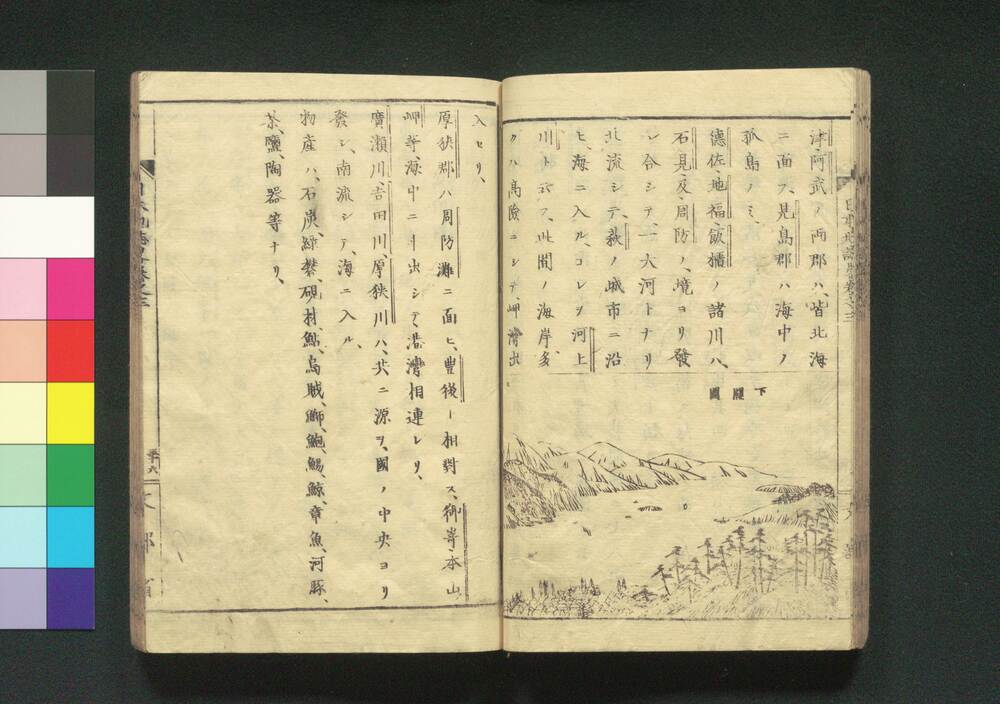 津、阿武ノ兩郡ハ、皆北海
ニ面ス、見島郡ハ海中ノ
孤島ノミ、
德佐、地福、飯櫃ノ諸川ハ、
石見及周防ノ境ヨリ發
シ合シテ、一大河トナリ
北流シテ、萩ノ城市ニ沿
ヒ、海ニ入ル、コレヲ河上
川ト云フ、此間ノ海岸多
クハ高險ニシテ、岬灣出
下關圖
入セリ、
厚狹郡ハ周防灘ニ面ヒ、豊後ト相對ス、御嵜本山
岬等、海中ニ斗出シテ、港灣相連レリ、
廣瀬川、吉田川、厚狹川ハ、共ニ源ヲ、國ノ中央ヨリ
發シ、南流シテ、海ニ入ル、
物産ハ、石炭、綠礬、硯材、鮎、烏賊、鰤、鮑、鰑、鯨、章魚、河豚、
茶、鹽、陶器等ナリ、
文部省